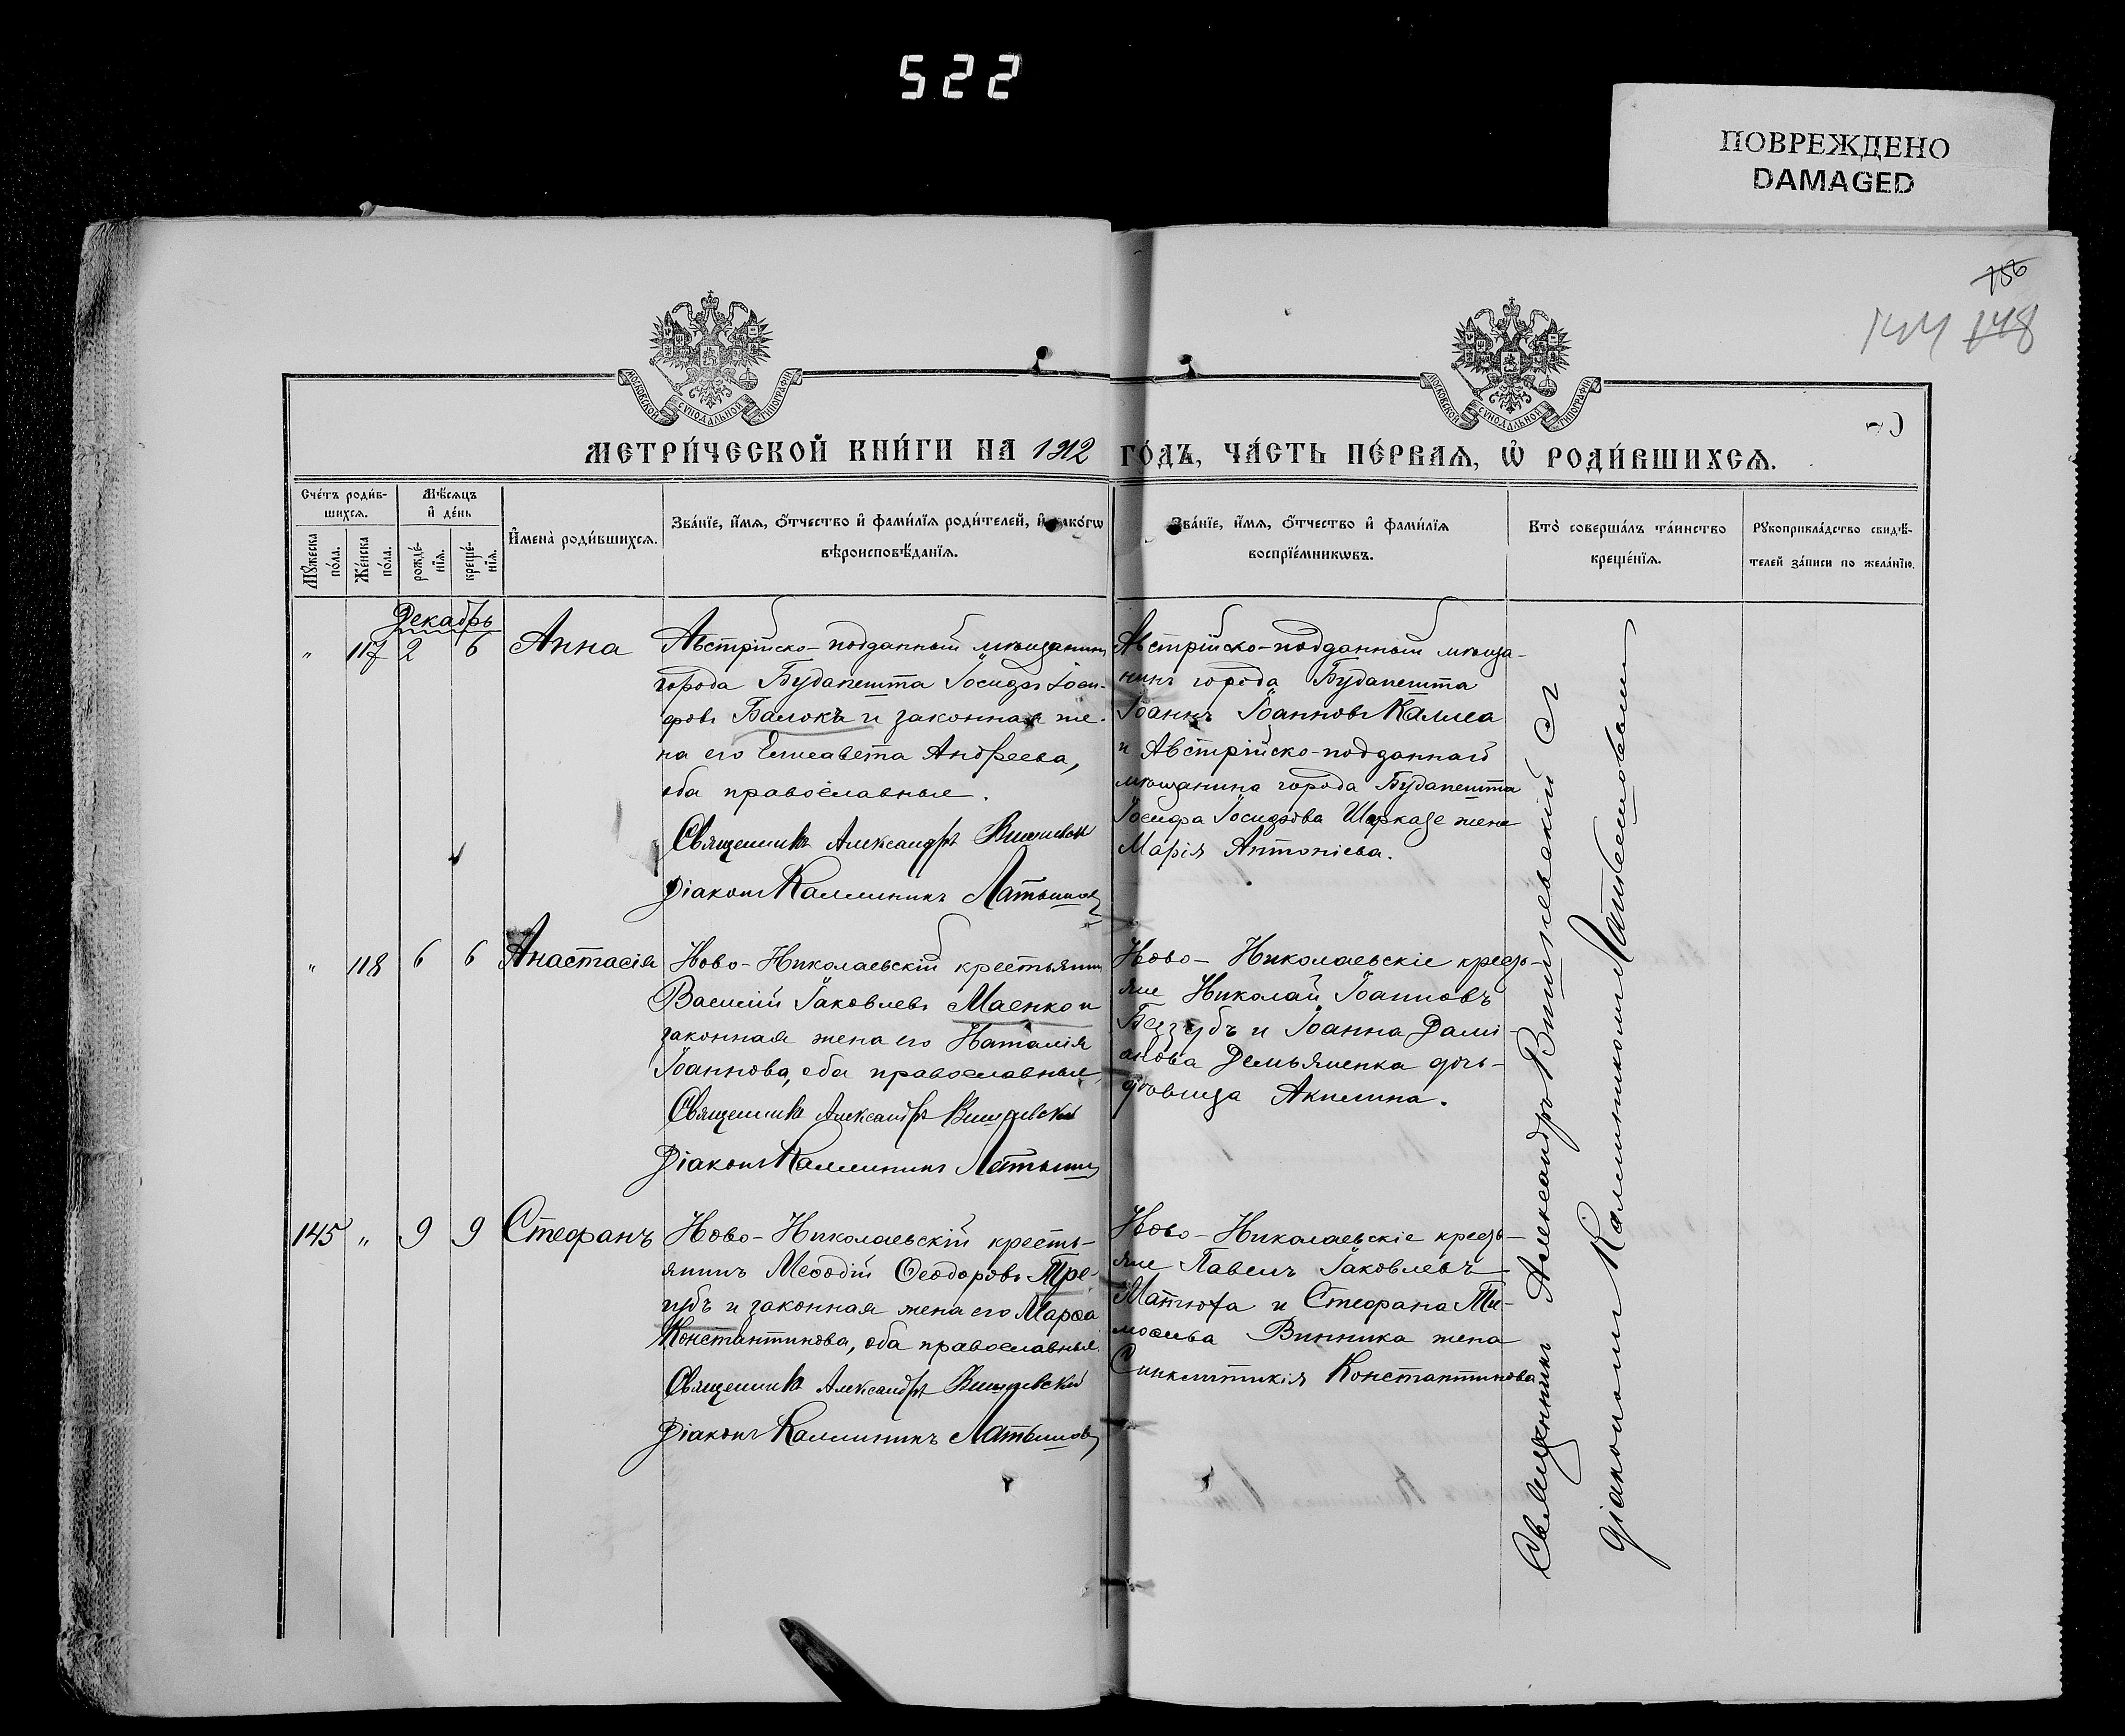 522
ПОВРЕЖДЕНО
DAMAGED
156
144 148
МОСКОВСКОЙ СѴНОДАЛЬНОЙ ТИПОГРАФІИ
МОСКОВСКОЙ СѴНОДАЛЬНОЙ ТИПОГРАФІИ
МЕТРИ́ЧЕСКОЙ КНИ́ГИ НА 1912 ГО́ДЪ, ЧА́СТЬ ПЕ́РВАѦ, Ѡ҆ РОДИ́ВШИХСѦ.
Сче́тъ роди́в-
шихсѧ.
Мѣ́сѧцъ
и҆ де́нь
Мꙋ́жеска
по́ла.
Же́нска
по́ла.
рожде́-
нїѧ.
креще́-
нїѧ.
И҆мена̀ роди́вшихсѧ.
Зва́нїе, и҆́мѧ, ѻ҆́тчество и҆ фами́лїѧ роди́телей, и҆ како́гѡ
вѣроисповѣ́данїѧ.
Зва́нїе, и҆́мѧ, ѻ҆́тчество и҆ фами́лїѧ
воспрїе́мникѡвъ.
Кто̀ соверша́лъ та́инство
креще́нїѧ.
Рꙋкоприкла́дство свидѣ́-
телей за́писи по жела́нїю.
Декабрь
" 117 2 6 Анна
Австрійско-подданный мѣщанинъ
города Будапешта Іосифъ Іоси-
фовъ Балокъ и законная же-
на его Елисавета Андреева,
оба православные.
Священникъ Александръ Вишневск
Діаконъ Каллиникъ Латышов
Австрійско-подданный мѣща-
нинъ города Будапешта
Іоаннъ Іоанновъ Калмеа
и Австрійско-подданнаго
мѣщанина города Будапешта
Іосифа Іосифова Шарказе жена
Марія Антоніева.
" 118 6 6 Анастасія
Ново-Николаевскій крестьянинъ
Василій Іаковлевъ Маенко и
законная жена его Наталія
Іоаннова, оба православные
Священникъ Александръ Вишневскій
Діаконъ Каллиникъ Латышов
Ново-Николаевскіе кресть-
яне Николай Іоанновъ
Беззубъ и Іоанна Дамі-
анова Демьяненка дочь-
дѣвица Акилина.
145 " 9 9 Стефанъ
Ново-Николаевскій кресть-
янинъ Меѳодій Ѳеодоровъ Тре-
губъ и законная жена его Марѳа
Константинова, оба православные.
Священникъ Александръ Вишневскій
Діаконъ Каллиникъ Латышов
Ново-Николаевскіе кресть-
яне Павелъ Іаковлевъ
Матюха и Стефана Ти-
моѳеева Винника жена
Синклитикія Константинова
Священникъ Александръ Вишневскій съ
діакономъ Каллиникомъ Латышовымъ